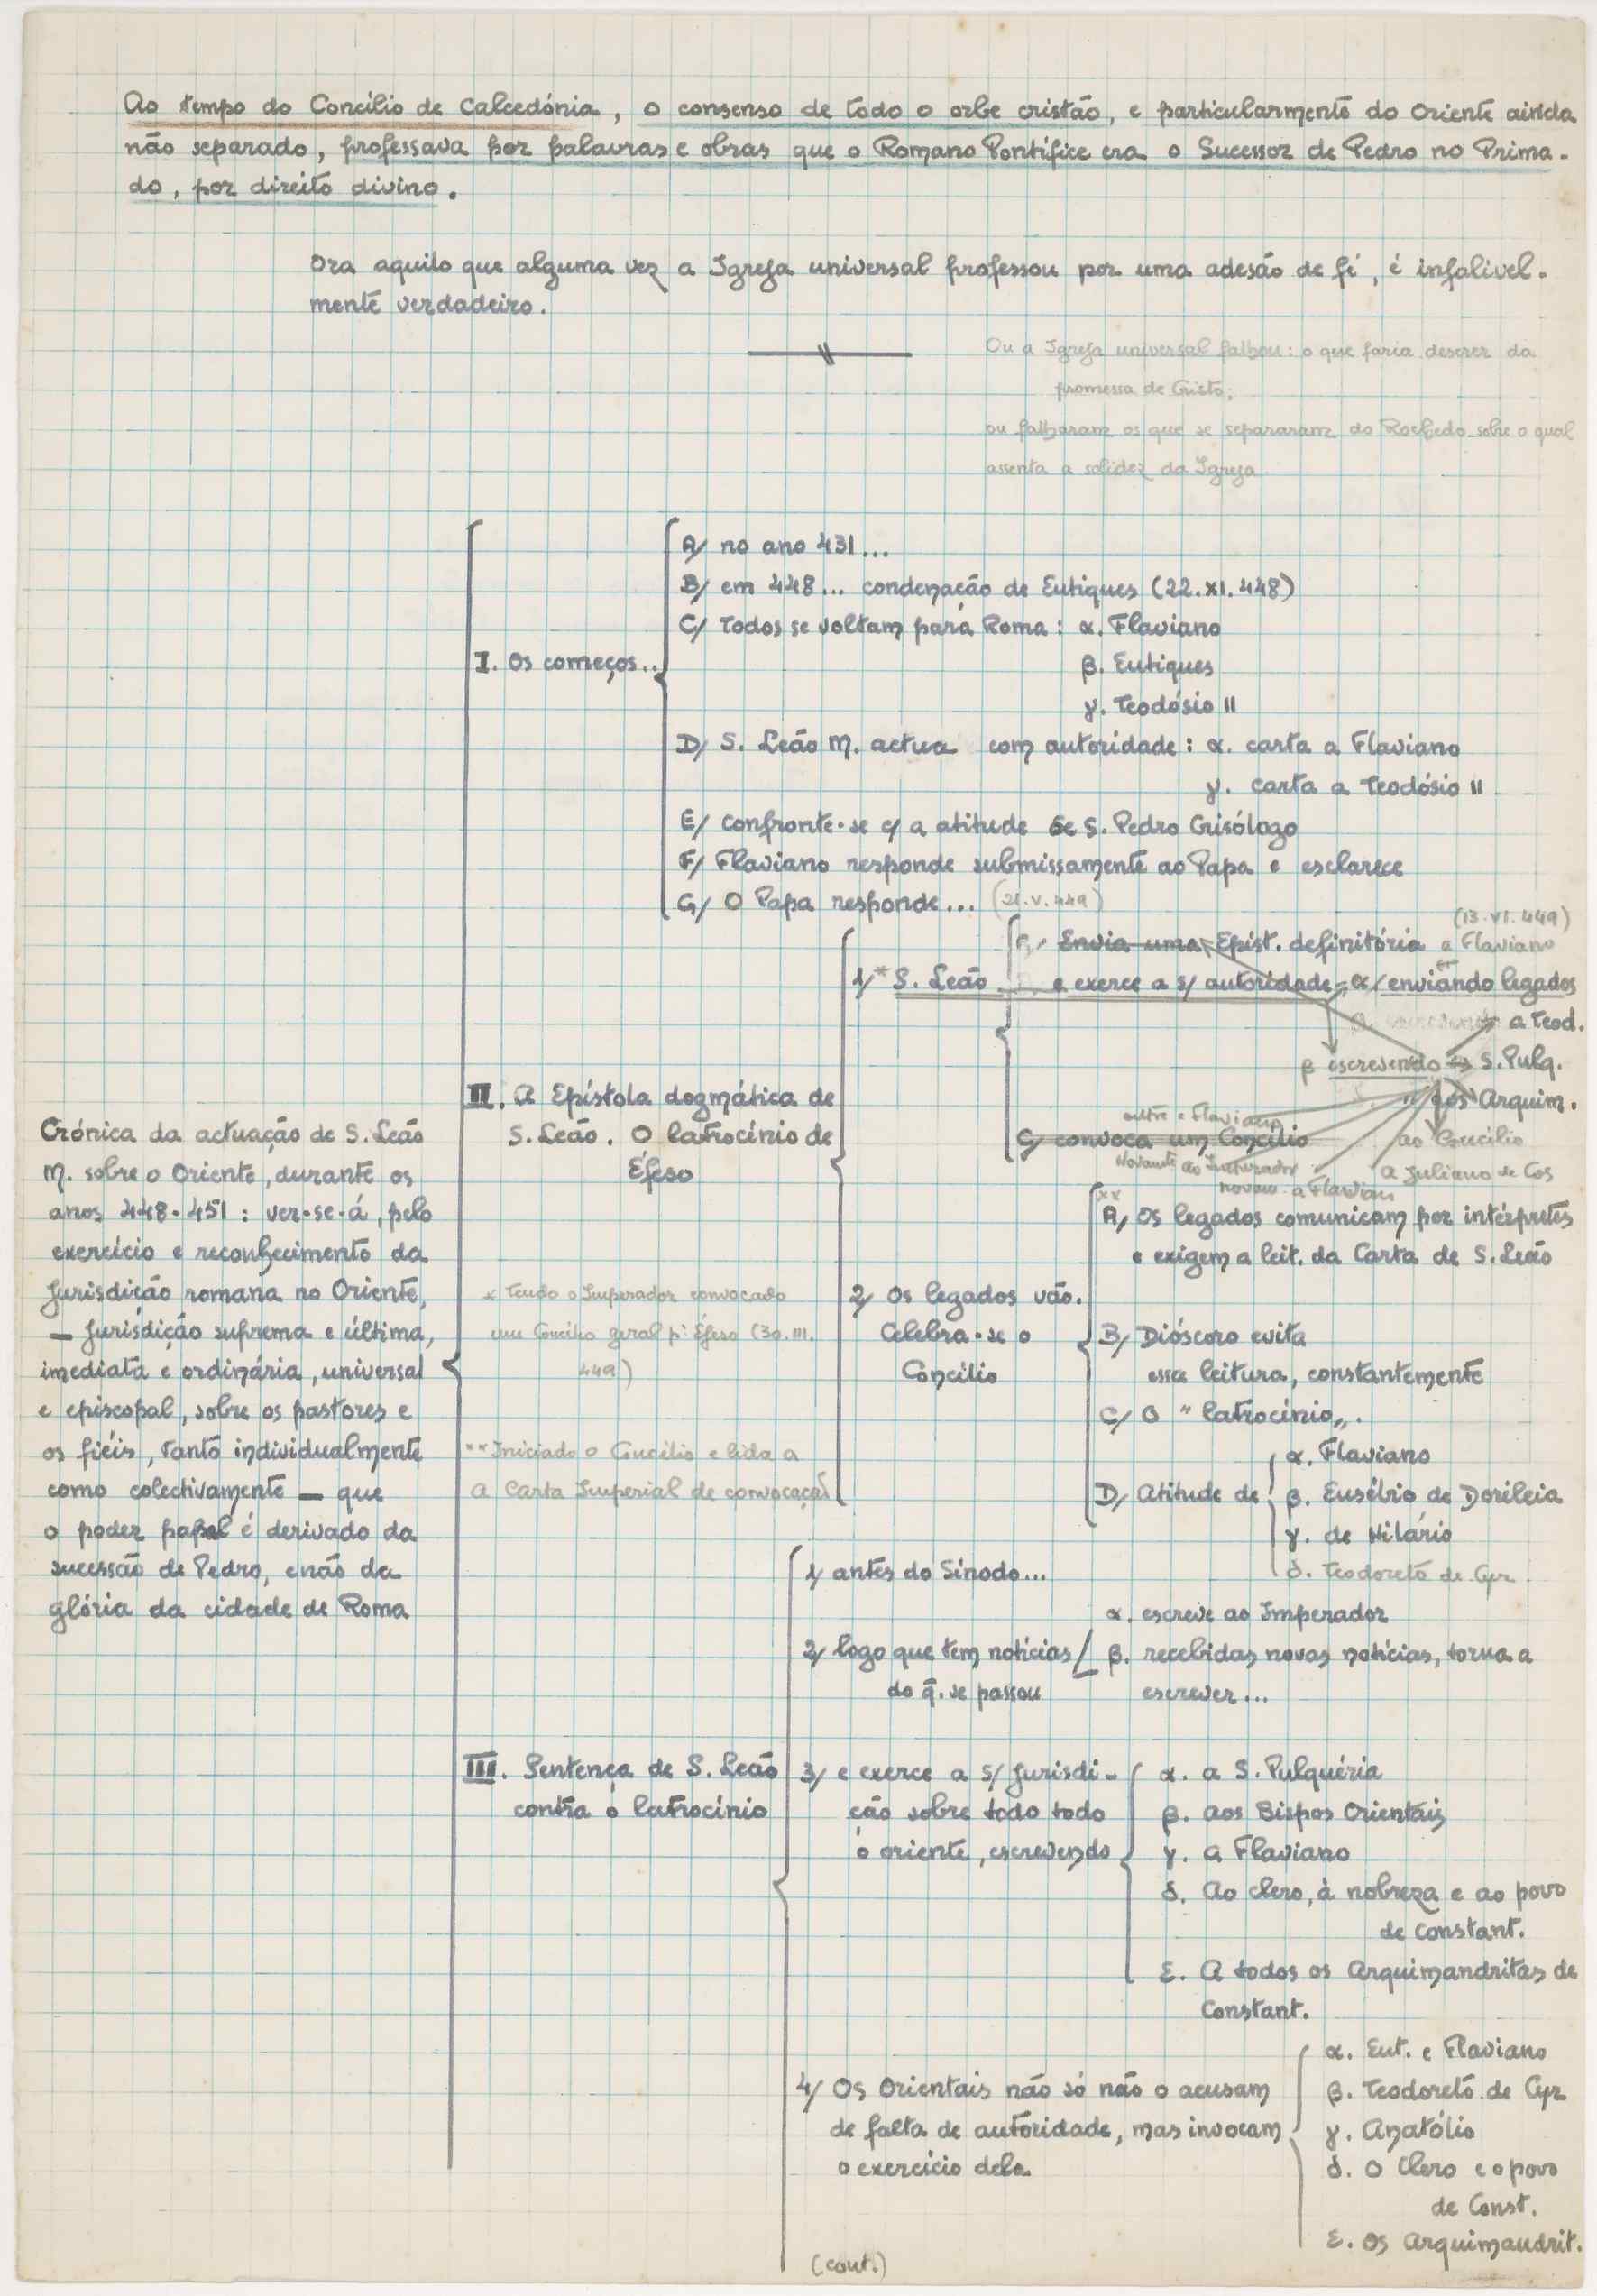 Ao tempo do Concílio de Calcedónia, o consenso de todo o orbe cristão, e particularmente do Oriente ainda
não separado, professava por palavras e obras que o Romano Pontífice era o Sucessor de Pedro no Prima-
do, por direito divino.
Ora aquilo que alguma vez a Igreja universal professou por uma adesão de fé, é infalivel-
mente verdadeiro.
Ou a Igreja universal falhou: o que faria descrer da
promessa de Cristo;
ou falharam os que se separaram do Rochedo sobre o qual
assenta a solidez da Igreja
Crónica da actuação de S. Leão
M. sobre o Oriente, durante os
anos 448-451: ver-se-á, pelo
exercício e reconhecimento da
Jurisdição romana no Oriente,
— Jurisdição suprema e última,
imediata e ordinária, universal
e episcopal, sobre os pastores e
os fiéis, tanto individualmente
como colectivamente — que
o poder papal é derivado da
sucessão de Pedro, e não da
glória da cidade de Roma
I. Os começos..
A/ no ano 431...
B/ em 448... condenação de Eutiques (22.XI.448)
C/ Todos se voltam para Roma: α. Flaviano
β. Eutiques
γ. Teodósio II
D/ S. Leão M. actua com autoridade: α. carta a Flaviano
γ. carta a Teodósio II
E/ Confronte-se c/ a atitude de S. Pedro Crisólogo
F/ Flaviano responde submissamente ao Papa e esclarece
G/ O Papa responde... (21.V.449)
II. A Epístola dogmática de
S. Leão. O latrocínio de
Éfeso
* Tendo o Imperador convocado
um Concílio geral pª Éfeso (30.III.
449)
** Iniciado o Concílio e lida a
a Carta Imperial de convocação
1/* S. Leão
(13.VI.449)
Envia uma Epíst. definitória a Flaviano
e exerce a s/ autoridade = α/ enviando legados
a Teod.
β escrevendo S. Pulq.
aos Arquim.
ao Concílio
a Juliano de Cos
outra a Flaviano
C/ convoca um Concílio
Novamte ao Imperador
novam. a Flavian
2/ Os legados vão.
Celebra-se o
Concílio
**
A/ Os legados comunicam por intérpretes
e exigem a leit. da Carta de S. Leão
B/ Dióscoro evita
essa leitura, constantemente
C/ O "latrocínio„.
D/ Atitude de
α. Flaviano
β. Eusébio de Dorileia
γ. de Hilário
δ. Teodoreto de Cyr
III. Sentença de S. Leão
contra o latrocínio
1/ antes do Sínodo...
2/ logo que tem notícias
do q̄. se passou
α. escreve ao Imperador
β. recebidas novas notícias, torna a
escrever...
3/ e exerce a s/ Jurisdi-
ção sobre todo todo
o oriente, escrevendo
α. a S. Pulquéria
β. aos Bispos Orientais
γ. a Flaviano
δ. Ao clero, à nobreza e ao povo
de Constant.
ε. A todos os Arquimandritas de
Constant.
4/ Os Orientais não só não o acusam
de falta de autoridade, mas invocam
o exercício dela
α. Eut. e Flaviano
β. Teodoreto de Cyr
γ. Anatólio
δ. O Clero e o povo
de Const.
ε. Os Arquimandrit.
(cont.)